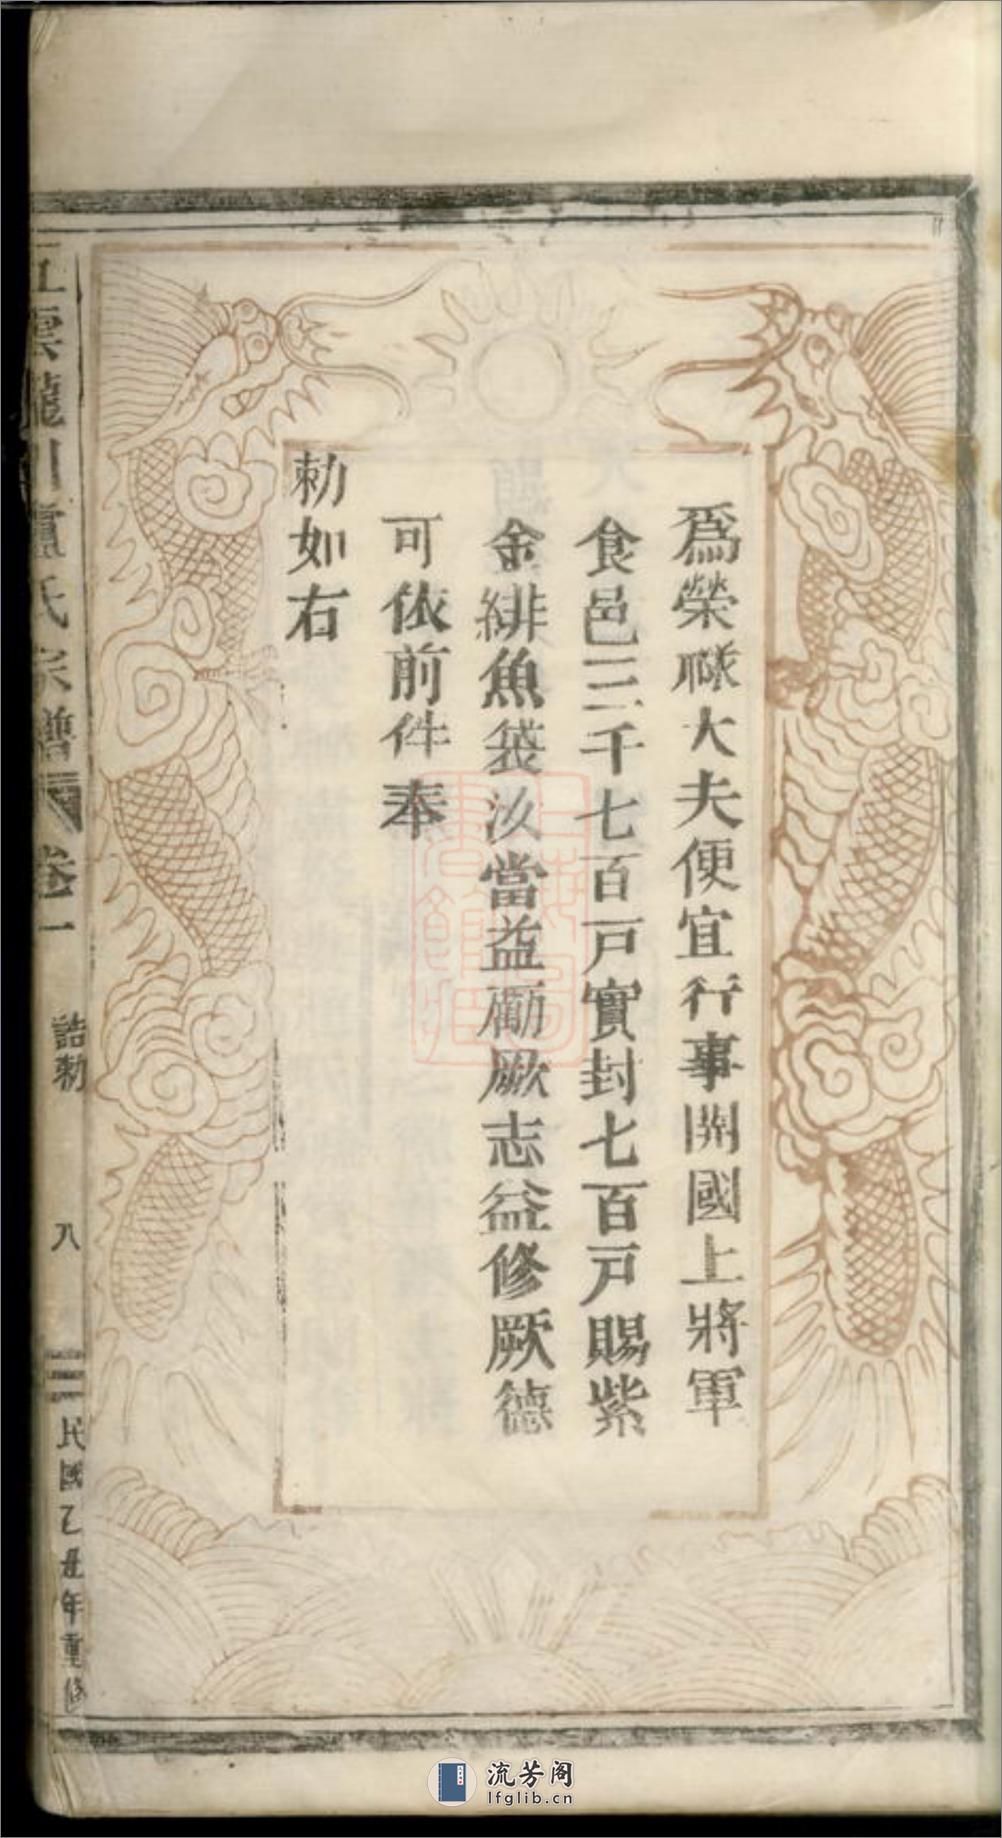 為榮祿大夫便宜行事開國上將軍
食邑三千七百戸實封七百戸賜紫
金緋魚袋汝當益勵厥志益修厥德
可依前件奉
勅如右
雲龍川盧氏宗譜 卷一 誥勅 八 民國乙丑年重修
流芳阁
lfglib.cn